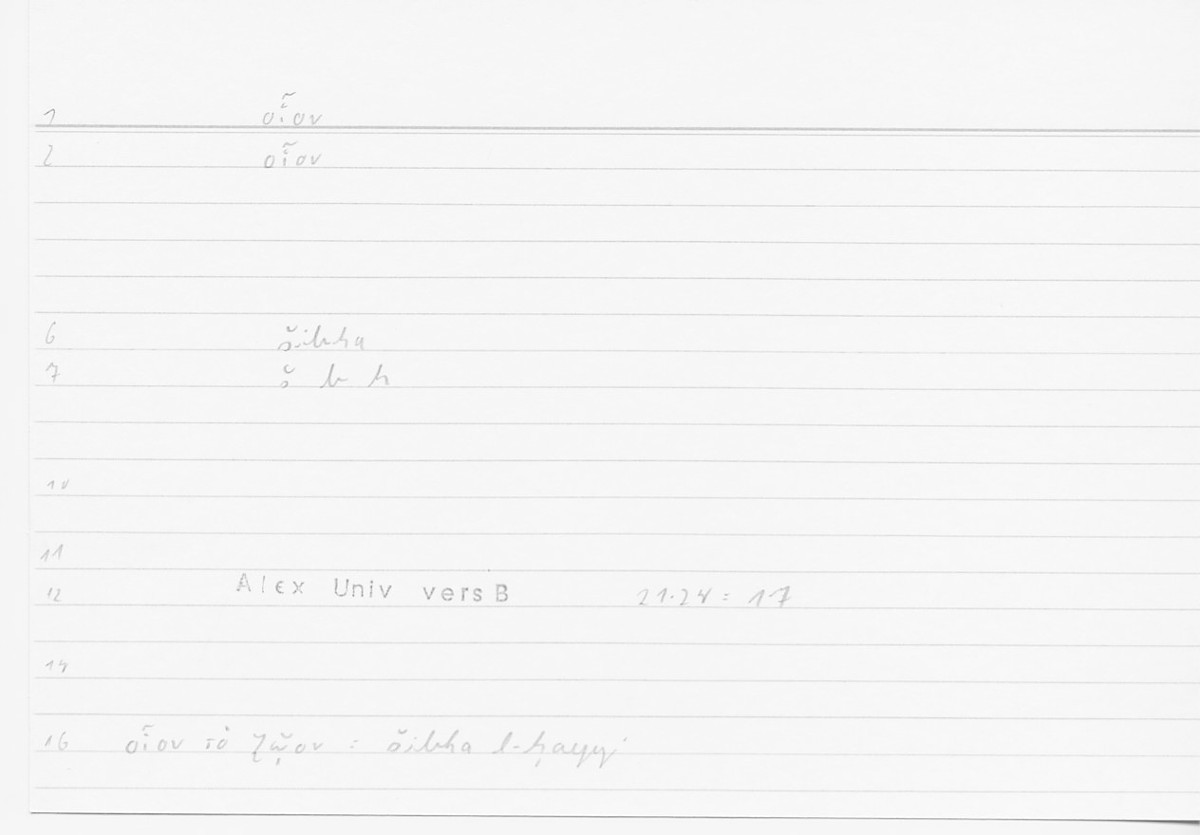 1 οἷον
2 οἷον
6 šibha
7 š b h
10
11
12 Alex Univ vers B 21.24 = 17
14
16 οἷον τὸ ζῷον : šibha l-ḥayyi